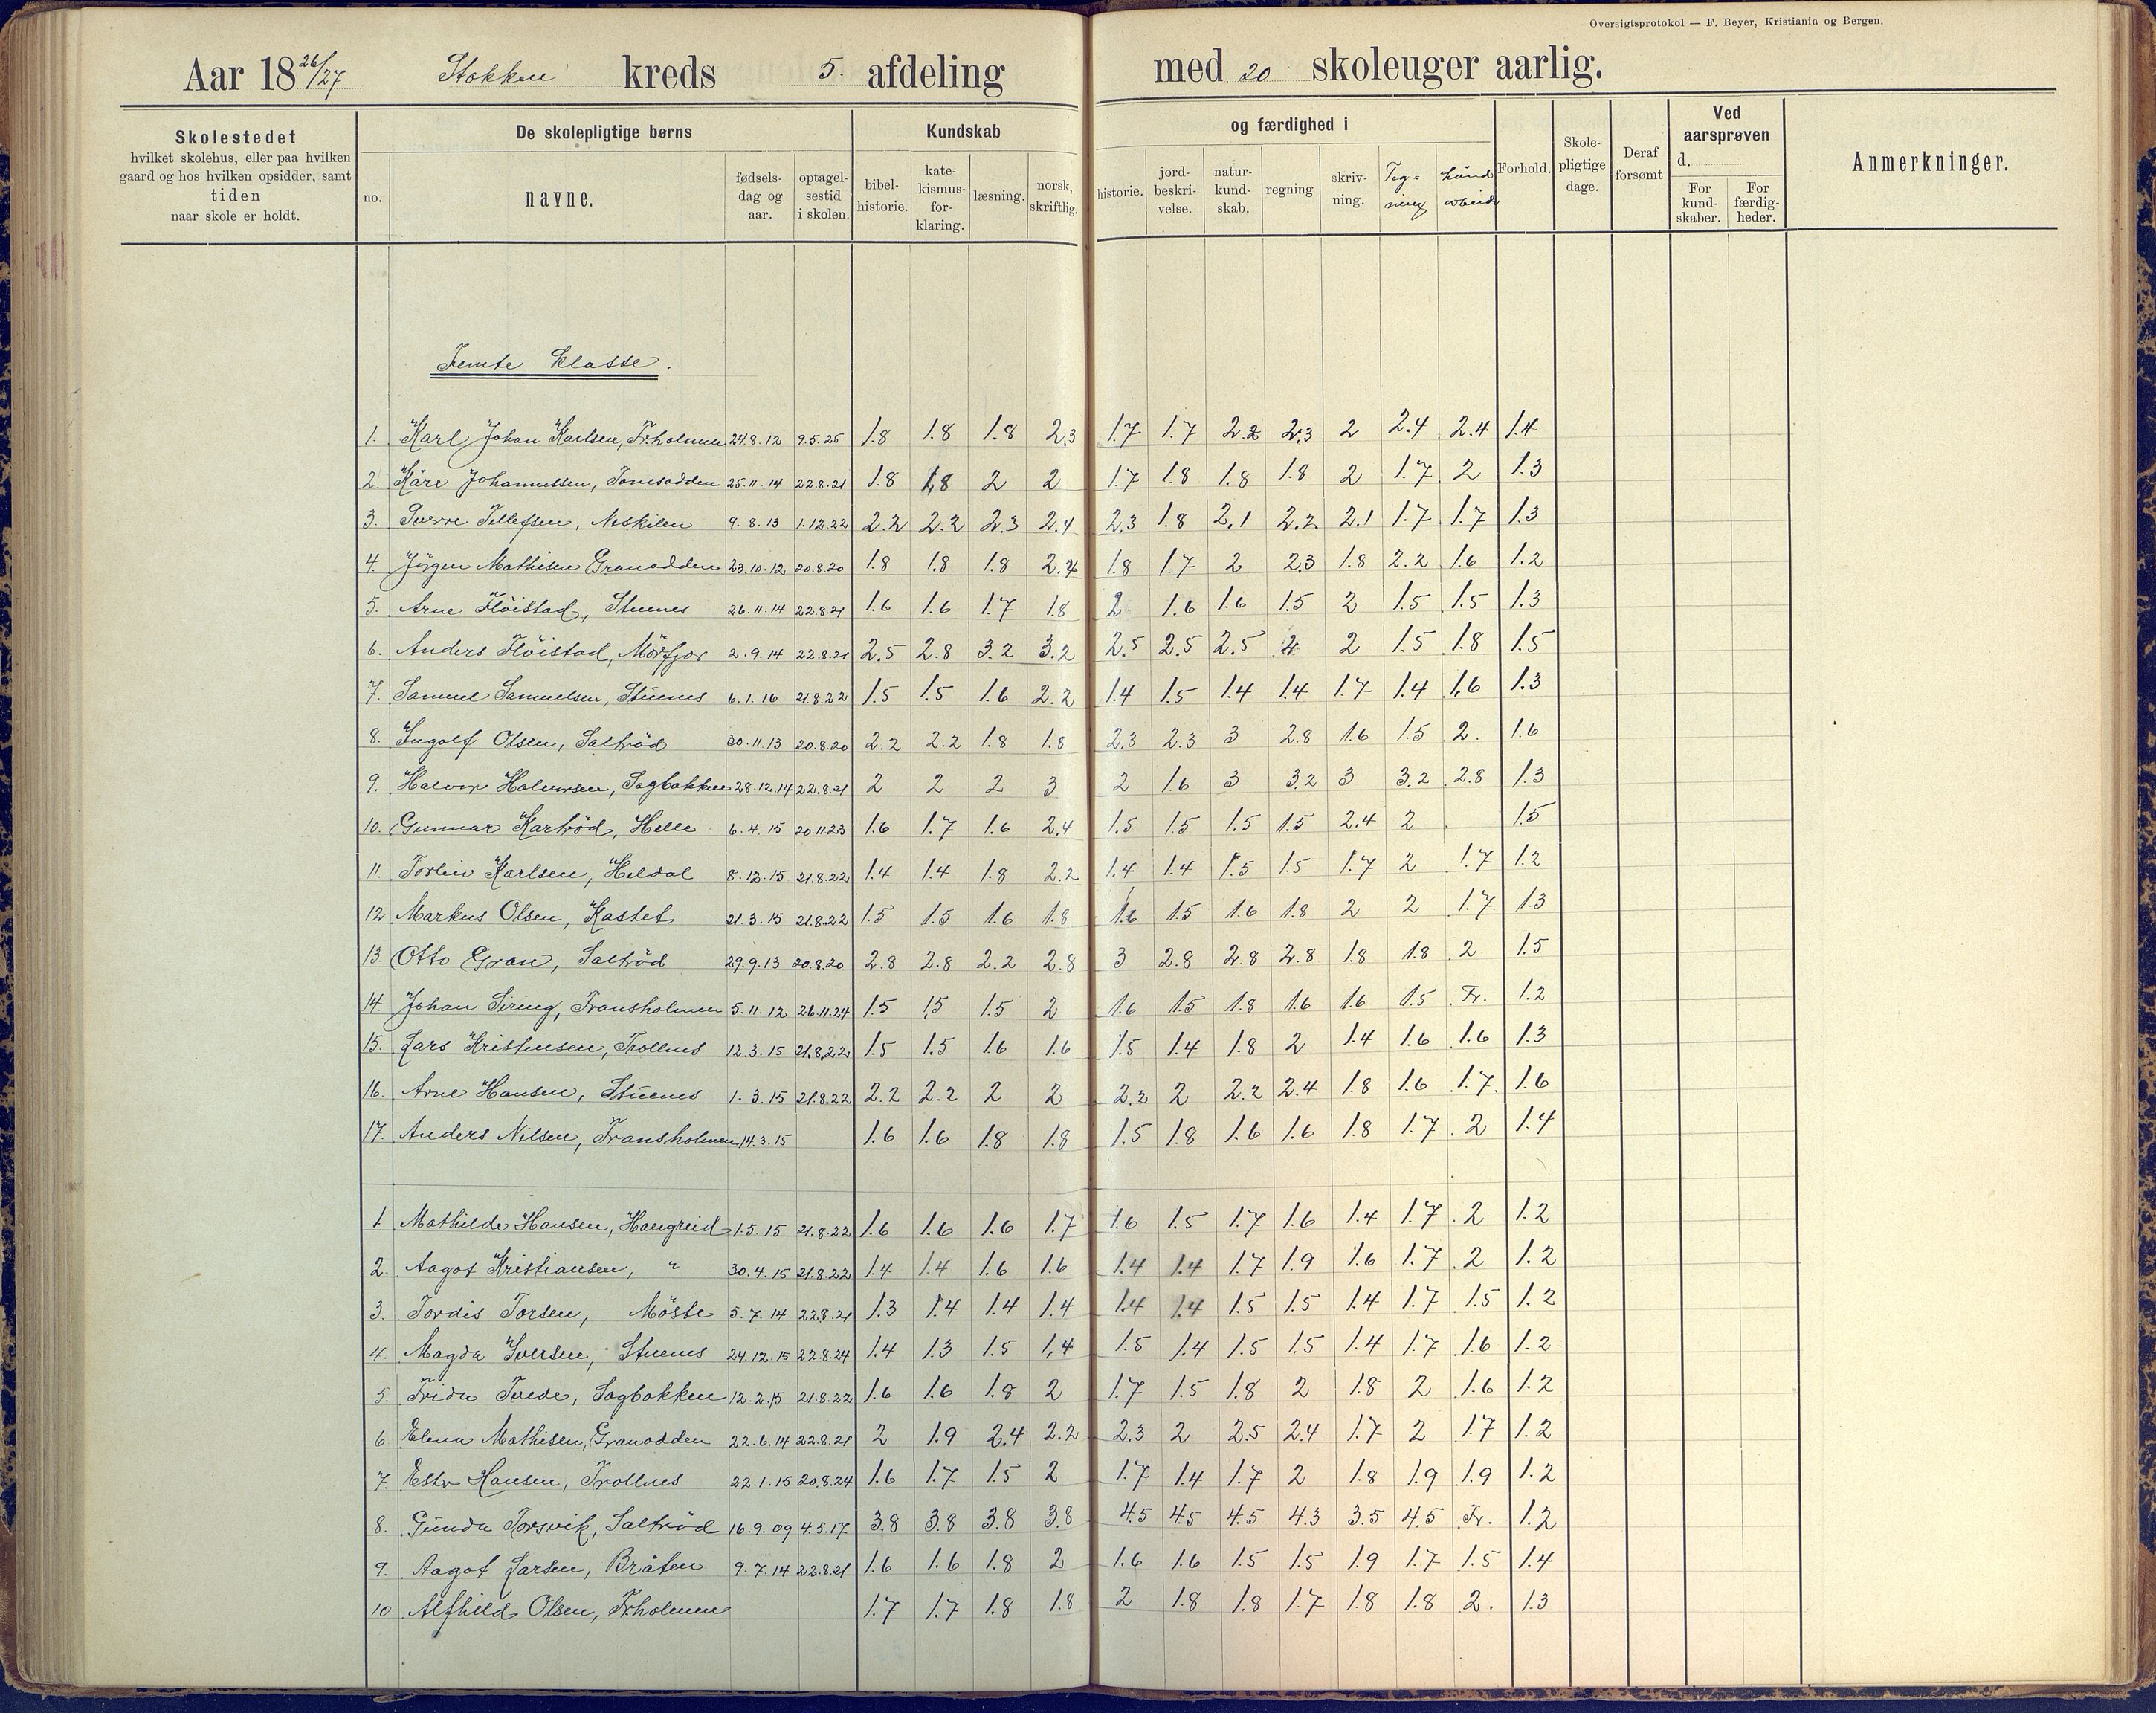 Oversigtsprotokol — F. Beyer, Kristiania og Bergen.
Aar 18 26/27 Stokken kreds 5. afdeling med 20 skoleuger aarlig.
Skolestedet hvilket skolehus, eller paa hvilken gaard og hos hvilken opsidder, samt tiden naar skole er holdt.
De skolepligtige børns
no. navne. fødsels-dag og aar. optagel-sestid i skolen.
Kundskab og færdighed i
bibel-historie. kate-kismus-for-klaring. læsning. norsk, skriftlig. historie. jord-beskri-velse. natur-kund-skab. regning skriv-ning. Teg=ning Hånd arbeide
Forhold. Skole-pligtige dage. Deraf forsømt
Ved aarsprøven d. For kund-skaber. For færdig-heder.
Anmerkninger.
Femte Klasse.
1. Karl Johan Karlsen, Fr.holmen 24.8.12 9.5.25 1.8 1.8 1.8 2,3 1.7 1.7 2.2 2,3 2 2.4 2.4 1.4
2. Kåre Johannessen, Tonesodden 25.11.14 22.8.21 1.8 1,8 2 2 1.7 1.8 1.8 1.8 2 1.7 2 1.3
3. Sverre Tellefsen, Neskilen 9.8.13 1.12.22 2.2 2.2 2.3 2.4 2,3 1.8 2,1 2.2 2.1 1.7 1.7 1.3
4. Jörgen Mathisen Granodden 23.10.12 20.8.20 1.8 1.8 1.8 2.4 1.8 1.7 2 2,3 1.8 2.2 1.6 1.2
5. Arne Flöistad, Stuenes 26.11.14 22.8.21 1.6 1.6 1.7 1.8 2 1.6 1.6 1.5 2 1.5 1.5 1.3
6. Anders Flöistad, Mörfjær 2.9.14 22.8.21 2.5 2.8 3.2 3.2 2.5 2.5 2.5 2 1.5 1.8 1.5
7. Samuel Samuelsen, Stuenes 6.1.16 21.8.22 1.5 1.5 1.6 2.2 1.4 1.5 1.4 1.4 1.7 1.4 1,6 1.3
8. Ingolf Olsen, Saltröd 30.11.13 20.8.20 2.2 2.2 1.8 1.8 2,3 2.3 3 2.8 1.6 1.5 2. 1.6
9. Halvor Halvorsen, Sagbakken 28.12.14 22.8.21 2 2 2 3 2 1.6 3 3.2 3 3.2 2.8 1.3
10. Gunnar Karröd, Helle 6.4.15 20.11.23 1.6 1.7 1.6 2.4 1.5 1.5 1.5 1.5 2.4 2 1.5
11. Torleiv Karlsen, Heldal 8.12.15 21.8.22 1.4 1.4 1.8 2.2 1.4 1.4 1.5 1.5 1.7 2 1.7 1.2
12 Markus Olsen, Kastet 21.3.15 21.8.22 1.5 1.5 1.6 1.8 1.6 1.5 1.6 1.8 2 2 1.7 1.3
13. Otto Gran, Saltröd 29.9.13 20.8.20 2.8 2.8 2.2 2.8 3 2.8 2.8 2.8 1.8 1.8 2 1.5
14. Johan Siring, Fransholmen 5.11.12 26.11.24 1.5 1,5 1.5 2 1.6 1.5 1.8 1.6 1.6 1.5 Fr. 1.2
15. Lars Kristensen, Trollnes 12.3.15 21.8.22 1.5 1.5 1.6 1.6 1.5 1.4 1.8 2 1.4 1.6 1.6 1.3
16. Arne Hansen, Stuenes 1.3.15 21.8.22 2.2 2.2 2 2 2.2 2 2.2 2.4 1.8 1.6 1.7. 1.6
17. Anders Nilsen, Fransholmen 14.3.15 1.6 1.6 1.8 1.8 1.5 1.8 1.6 1.6 1.8 1.7 2 1.4
1 Mathilde Hansen, Haugreid 1.5.15 21.8.22 1.6 1.6 1.6 1.7 1.6 1.5 1.7 1.6 1.4 1.7 2 1.2
2. Aagot Kristiansen, " 30.4.15 21.8.22 1.4 1.4 1.6 1.6 1.4 1.4 1.7 1.9 1.6 1.7 2 1.2
3. Tordis Torsen, Möste 5.7.14 22.8.21 1.3 1.4 1.4 1.4 1.4 1.4 1.5 1.5 1.4 1.7 1.5 1.2
4. Magda Iversen, Stuenes 24.12.15 22.8.24 1.4 1.3 1.5 1,4 1.5 1.4 1.5 1.5 1.4 1.7 1.6 1.2
5. Frida Tvede, Sagbakken 12.2.15 21.8.22 1.6 1.6 1.8 2 1.7 1.5 1.8 2 1.8 2 1.6 1.2
6 Elena Mathisen, Granodden 22.6.14 22.8.21 2 1.9 2.4 2.2 2.3 2 2.5 2.4 1.7 2 1.7 1.2
7. Ester Hansen, Trollnes 22.1.15 20.8.24 1.6 1.7 1.5 2 1.7 1.4 1.7 2 1.8 1.9 1.9 1.2
8. Gunda Torsvik, Saltröd 16.9.09 4.5.17 3.8 3.8 3.8 3.8 4.5 4.5 4.5 4.3 3.5 4.5 Fr. 1.2
9. Aagot Larsen, Bråten 9.7.14 22.8.21 1.6 1.6 1.8 2 1.6 1.6 1.5 1.5 1.9 1.7 1.5 1.4
10 Alfhild Olsen, Fr.holmen 1.7 1.7 1.8 1.8 2 1.8 1.8 1.7 1.8 1.8 2. 1.3